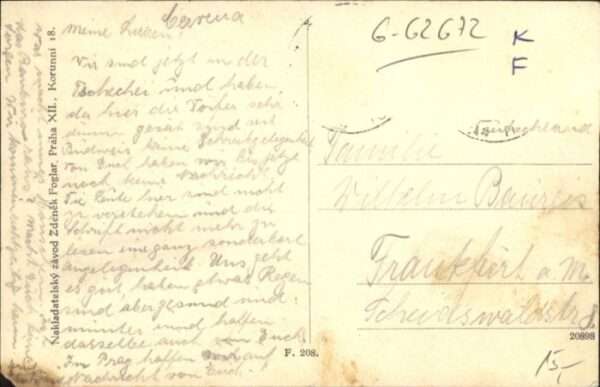 Cervena
Meine Lieben!
Wir sind jetzt in der
Tschechei und haben,
da hier die Dörfer sehr
dünn gesät sind seit
Budweis keine Schreibgelegenheit
Von Euch haben wir bis jetzt
noch keine Nachricht.
Die Leute hier sind nicht
zu verstehen und die
Schrift nicht mehr zu
lesen eine ganz sonderbare
Angelegenheit. Uns geht
es gut, haben etwas Regen
sind aber gesund und
munter und hoffen
dasselbe auch von Euch.
In Prag hoffen wir auf
Nachricht von Euch!
Nakladatelský závod Zdeněk Foglar, Praha XII., Korunní 18.
F. 208.
6-62672
K
F
Deutschland
Familie
Wilhelm
Frankfurt a. M.
Scheidswaldstr
20898
15,-